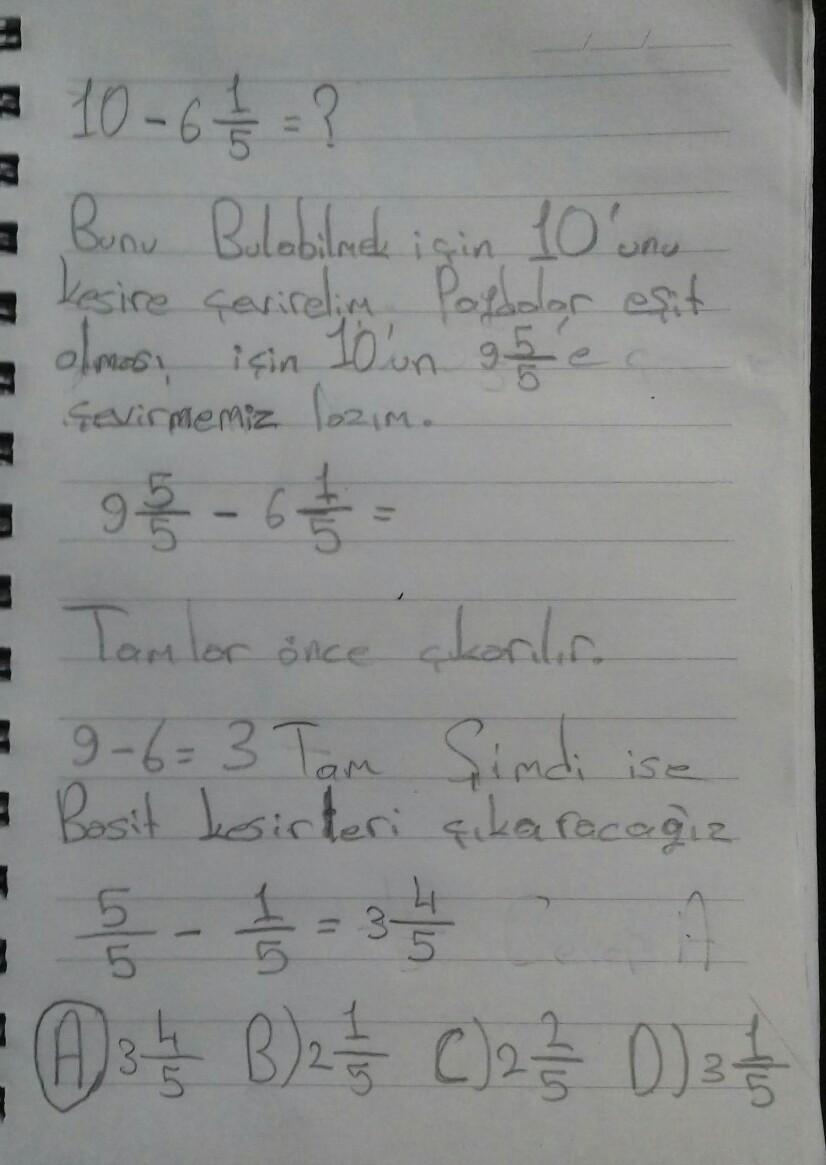 10 - 6 1/5 = ?
Bunu Bulabilmek için 10'unu
kesire çevirelim. Paydalar eşit
olması için 10'un 9 5/5'e
çevirmemiz lazım.
9 5/5 - 6 1/5 =
Tamlar önce çıkarılır.
9-6= 3 Tam Şimdi ise
Basit kesirleri çıkaracağız
5/5 - 1/5 = 3 4/5 A
A) 3 4/5 B) 2 1/5 C) 2 2/5 D) 3 1/5